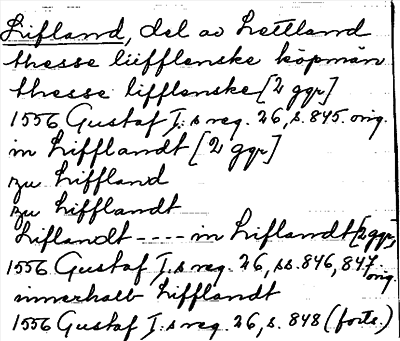 Lifland, del av Lettland
thesse liifflenske köpmän
thesse lifflenske [2 ggr]
1556 Gustaf I:s reg. 26, s. 845. orig.
in Lifflandt [2 ggr]
zu Liffland
zu Lifflandt
Liflandt ---- in Liflandt [2 ggr]
1556 Gustaf I:s reg. 26, ss. 846, 847. orig.
innerhalb Lifflandt
1556 Gustaf I:s reg. 26, s. 848 (forts.)